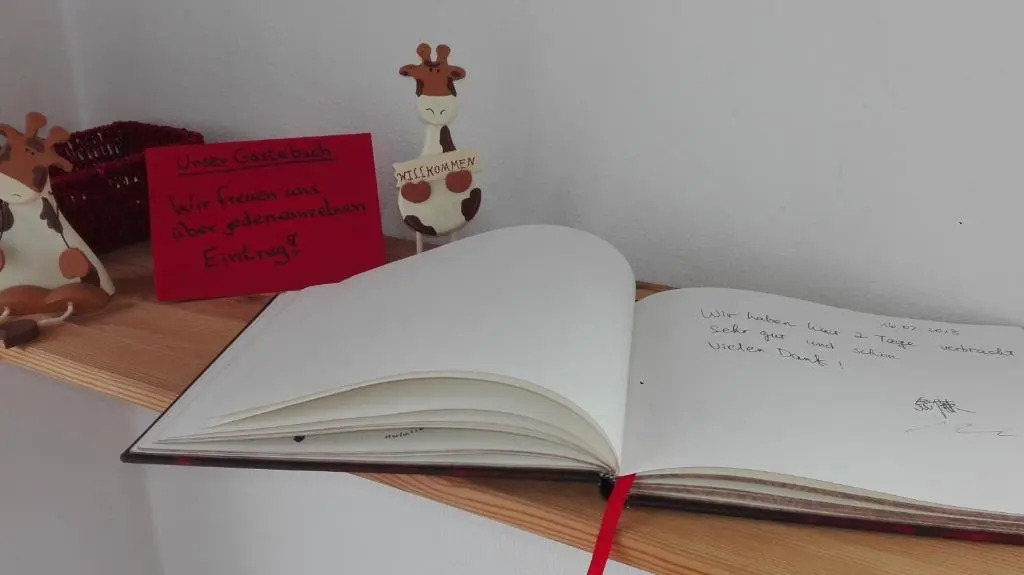 Unser Gästebuch
Wir freuen uns
über jeden einzelnen
Eintrag!
WILLKOMMEN
16.02.2018
Wir haben hier 2 Tage verbracht
Sehr gut und schön
Vielen Dank!